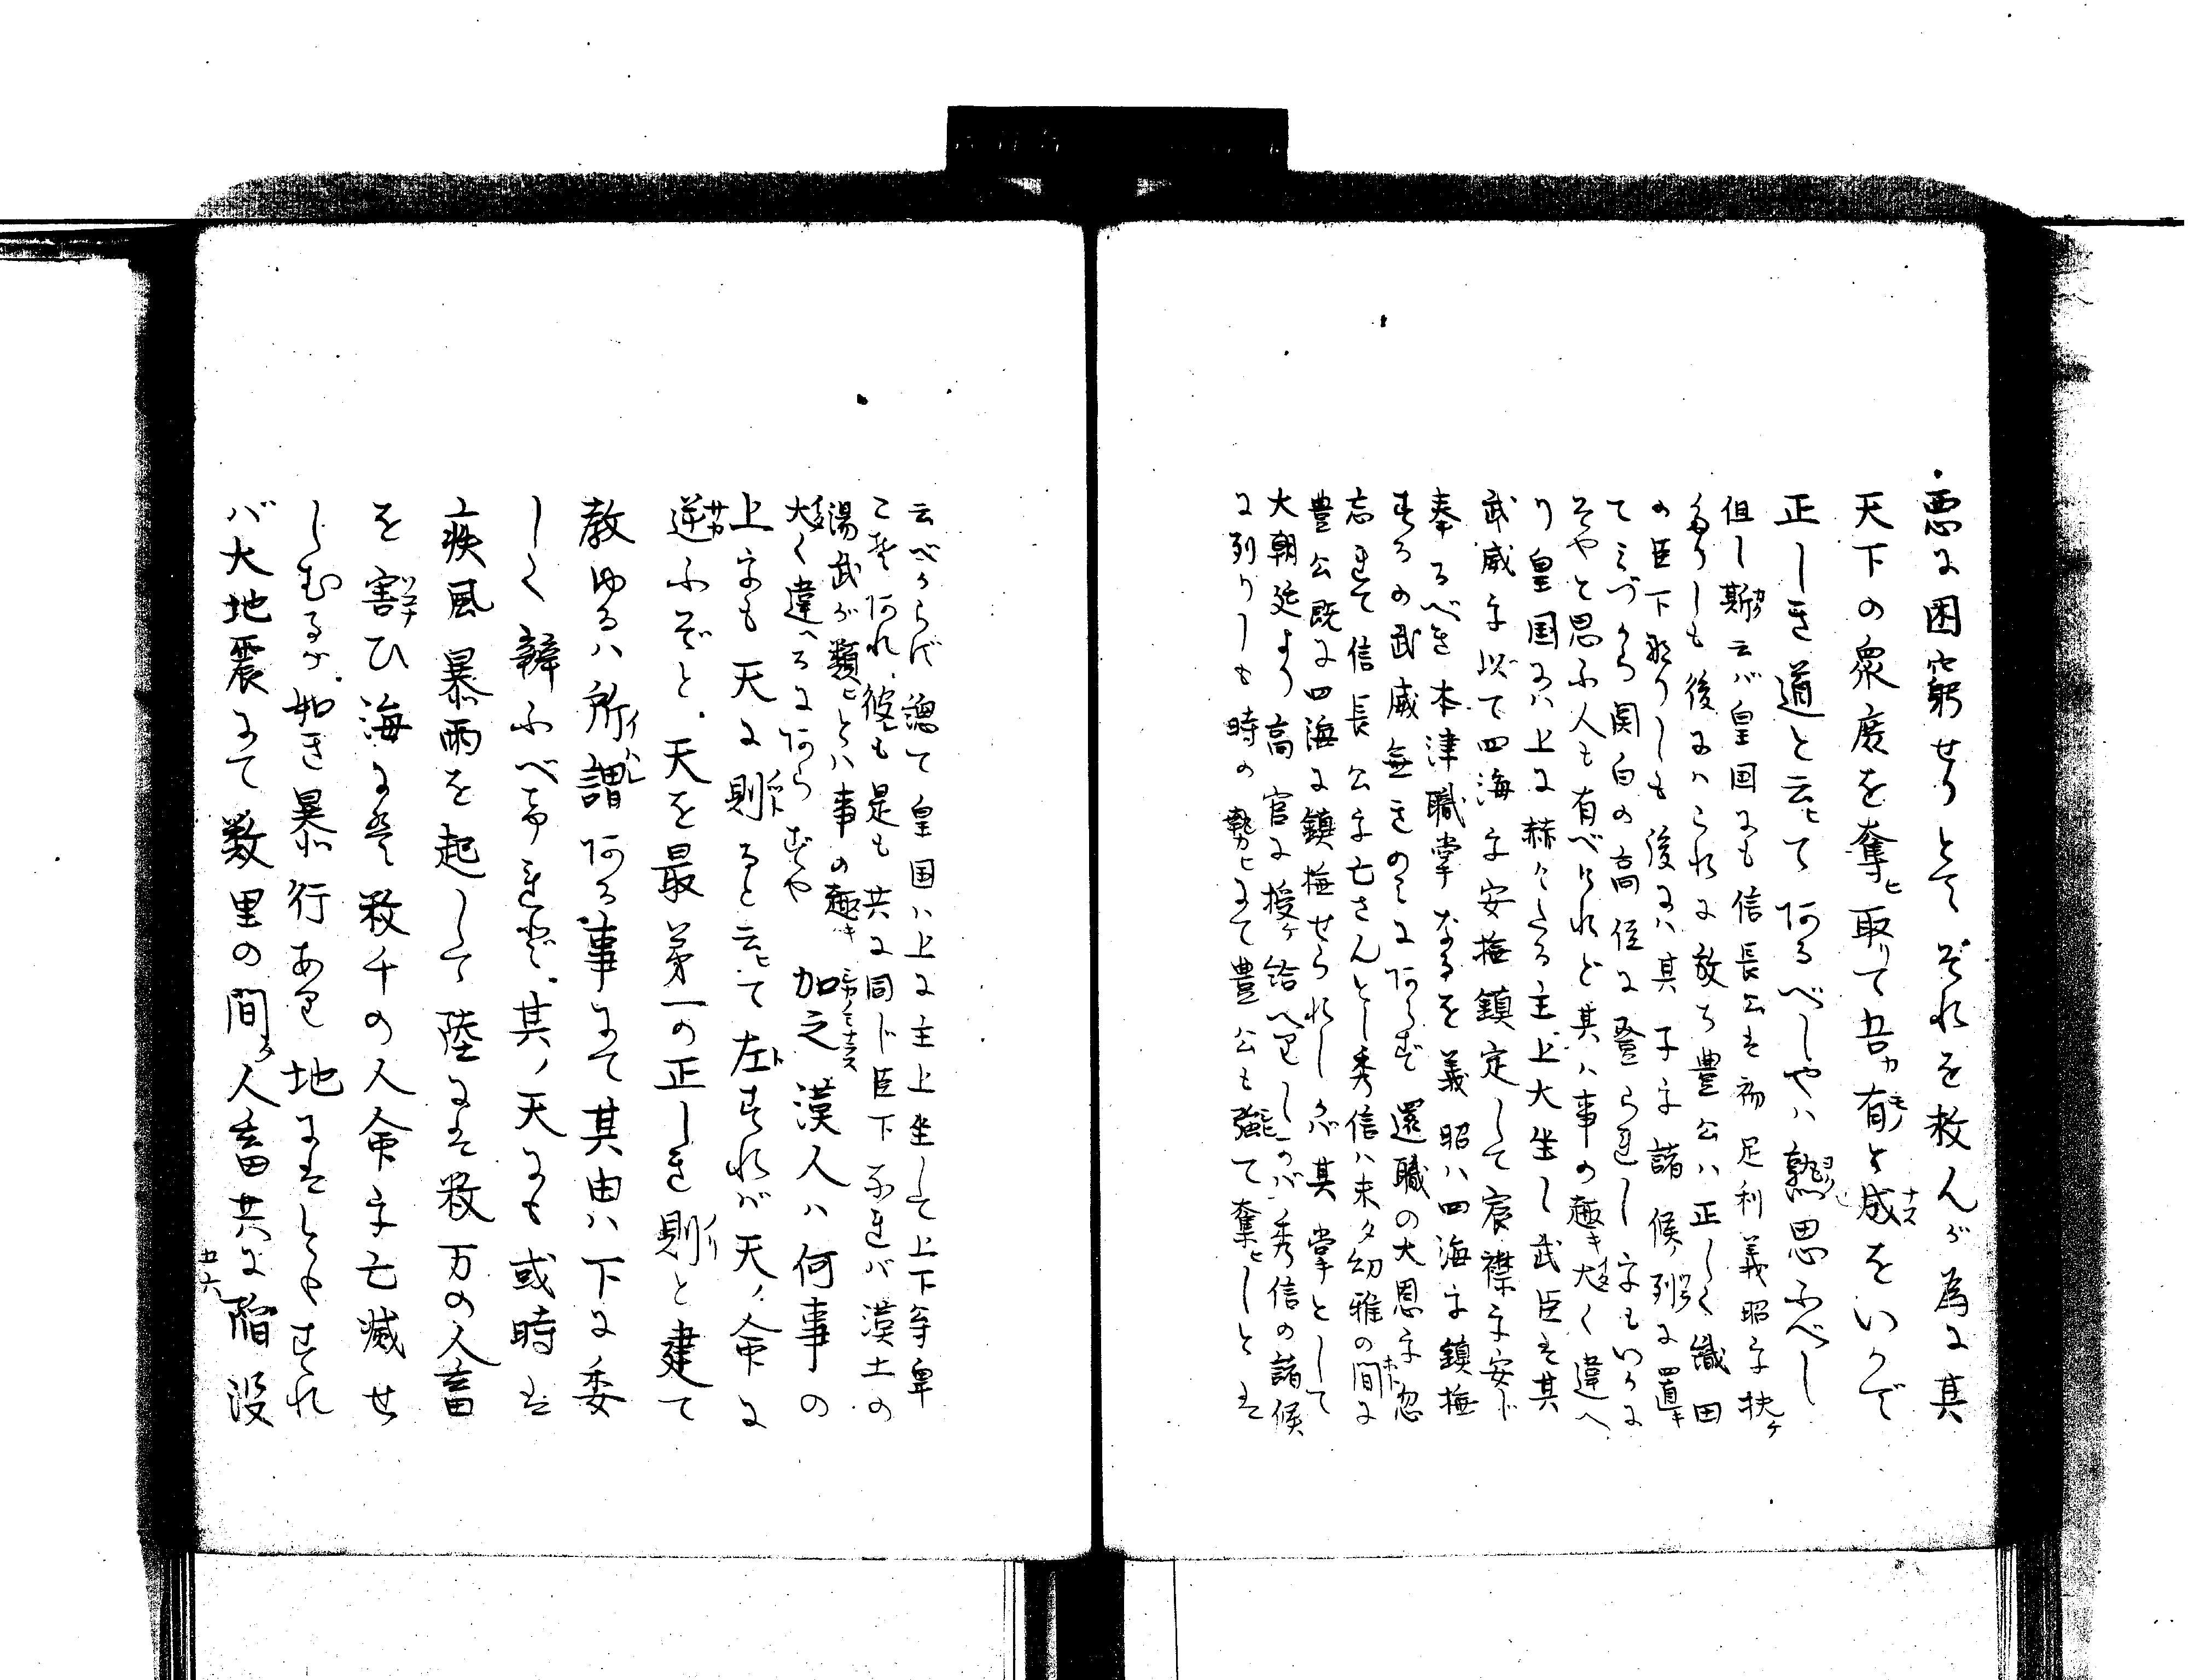 悪に困窮せりとてそれを救んが為に其
天下の衆庶を奪ヒ取リて吾カ有モノと成ナスをいかで
正しき道と云ヒてあるべしやハ熟ヨクヨク思ふべし
但し斯カク云バ皇国にも信長公は初足利義昭を扶ケ
たりしも後にハこれに敵ち豊公ハ正しく織田
の臣下なりしも後にハ其子を諸侯ノ列ツラに置キ
てみづから関白の高位に登られしをもいかに
そやと思ふ人も有べけれど其ハ事の趣キ大く違へ
り皇国にハ上に赫々たる主上大坐し武臣は其
武威を以て四海を安撫鎮定して宸襟を安ド
奉るべき本津職掌なるを義昭ハ四海を鎮撫
するの武威無きのミにあらず還職の大恩を忽
忘れて信長公を亡さんとし秀信ハ未タ幼雅の間に
豊公既に四海に鎮撫せられしかバ其掌として
大朝廷より高官に授ケ給へりしかバ秀信の諸侯
に列りしも時の勢ヒにて豊公も強ヒて奪ヒしとは
云べからず總て皇国ハ上に主上坐して上下尊卑
こそあれ彼も是も共に同ド臣下なれバ漢土の
湯武が類ヒとハ事の趣キ
大く違へるにあらずや 加之シカノミナラズ漢人ハ何事の
上をも天に則ノットると云ヒて左トすれバ天ノ命に
逆サカふぞと天を最第一の正しき則ノリと建て
教ゆるハ所謂イハレある事にて其由ハ下に委
しく辯ふべけれど其ノ天にも或時は
疾風暴雨を起して陸には数万の人畜
を害ソコナひ海には数千の人命を亡滅せ
しむるが如き暴行あり地にはともすれ
バ大地震にて数里の間タ人畜共に陷没
五六